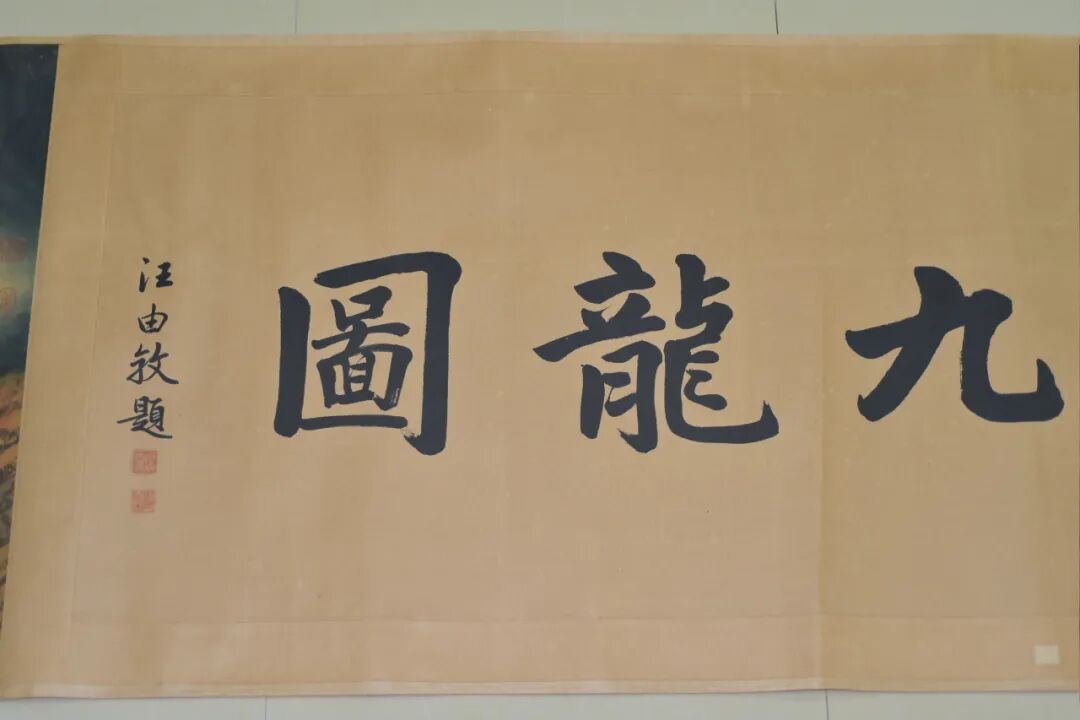 九龍圖
汪由敦題